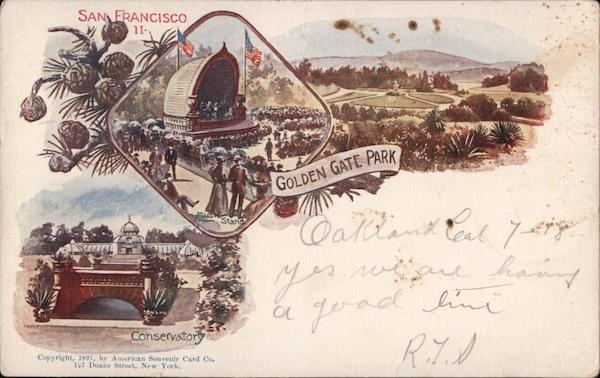 SAN FRANCISCO
11.
GOLDEN GATE PARK
Stand
Conservatory
Oakland Cal 7-18
yes we are having
a good time
Copyright, 1897, by American Souvenir Card Co.
127 Duane Street, New York.